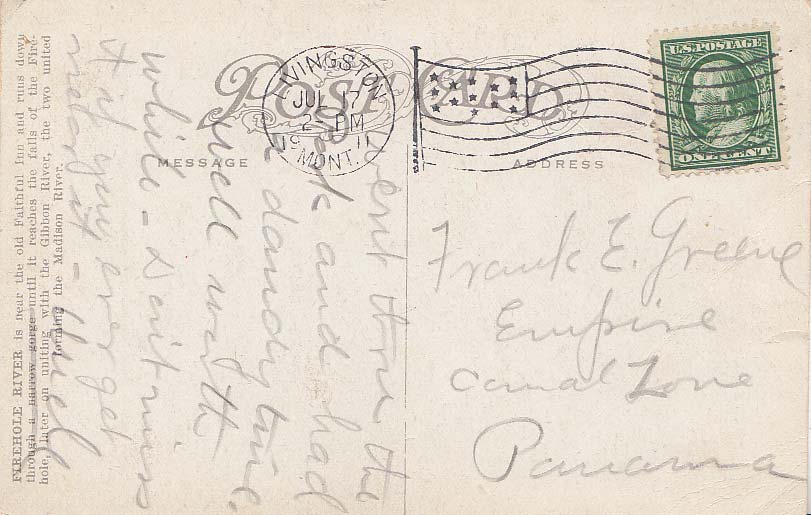 POST CARD
LIVINGSTON
JUL 7
2 PM
1911
MONT.
U.S. POSTAGE
ONE CENT
MESSAGE
ADDRESS
FIREHOLE RIVER is near the old Faithful Inn and runs down
through a narrow gorge until it reaches the falls of the Fire-
hole, later on uniting with the Gibbon River, the two united
forming the Madison River.
went thru the
Park and had
a dandy time.
well worth
while - Don't miss
it if you ever get
near it -
Frank E. Greene
Empire
Canal Zone
Panama